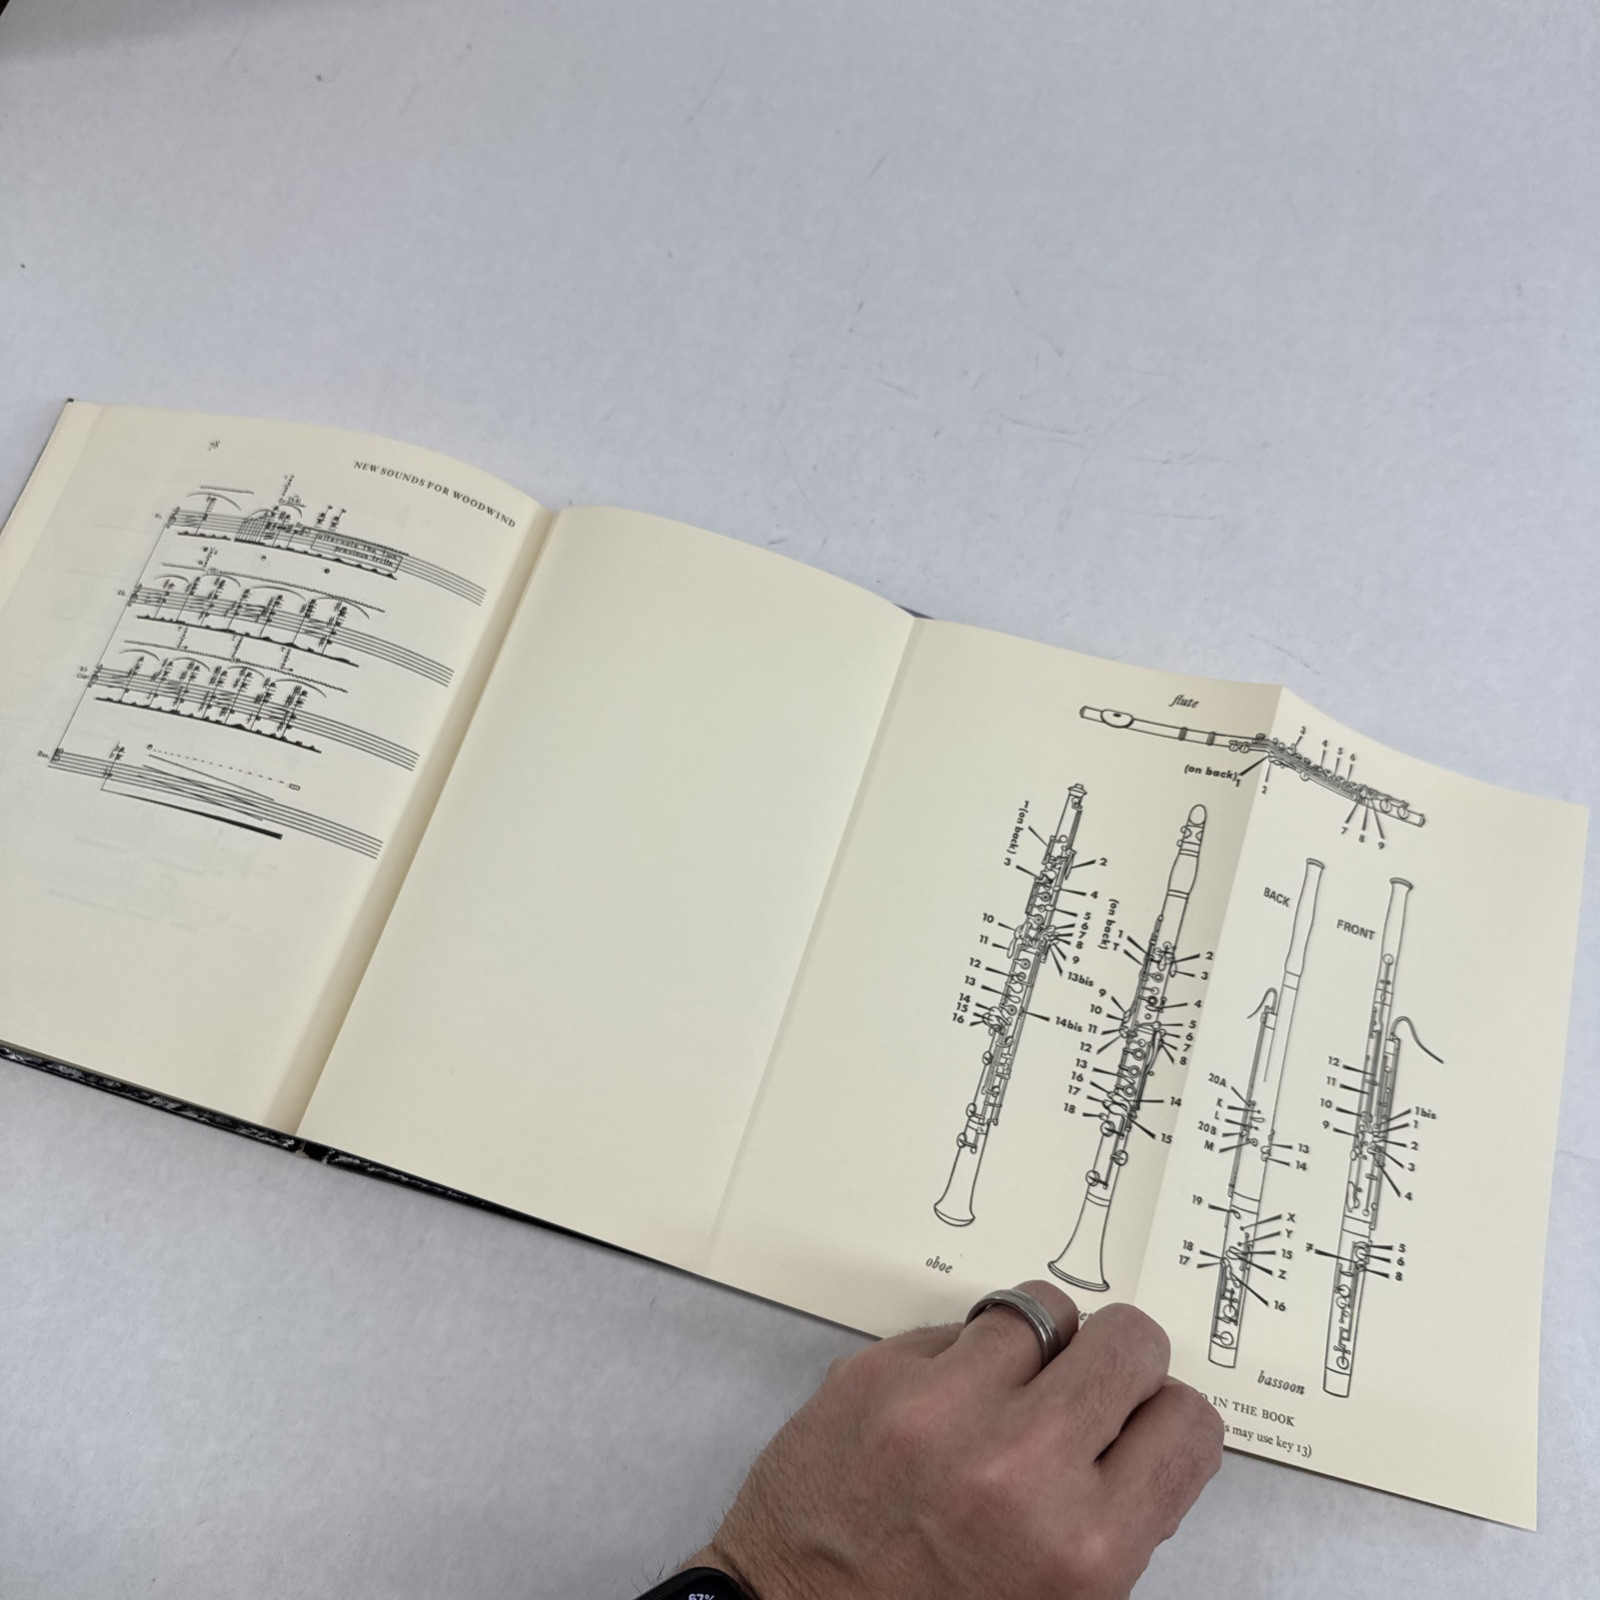 78
NEW SOUNDS FOR WOODWIND
Fl.
alternate the two
previous trills
Ob.
Cl.
Bsn.
flute
(on back) 1
2
3
4
5
6
7
8
9
1 (on back)
3
2
4
5
6
7
8
9
10
11
12
13
13bis
14
15
16
14bis
oboe
(on back)
1
T
2
3
4
9
10
11
12
5
6
7
8
13
16
17
18
14
15
BACK
20A
K
L
20B
M
13
14
19
X
Y
15
Z
18
17
16
FRONT
12
11
10
9
1bis
1
2
3
4
7
5
6
8
bassoon
IN THE BOOK
may use key 13)
67%